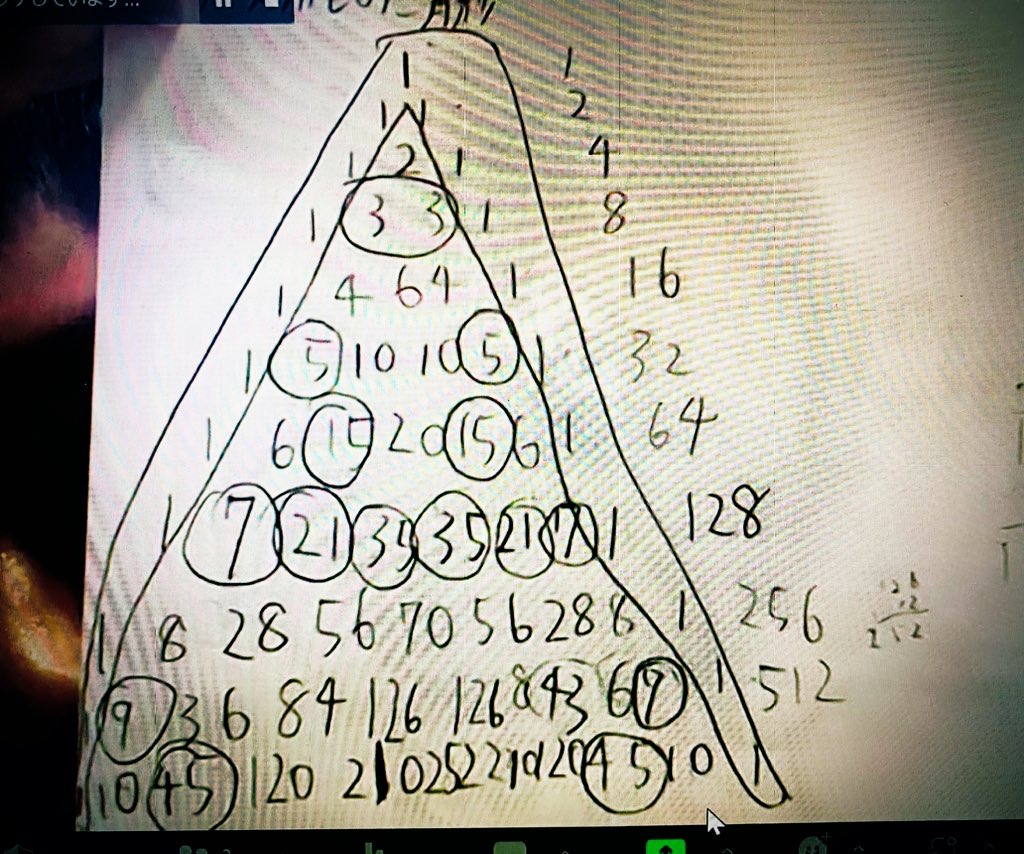 1 1
1 1 2
1 2 1 4
1 3 3 1 8
1 4 6 4 1 16
1 5 10 10 5 1 32
1 6 15 20 15 6 1 64
1 7 21 35 35 21 7 1 128
1 8 28 56 70 56 28 8 1 256
1 9 36 84 126 126 84 36 9 1 512
1 10 45 120 210 252 210 120 45 10 1